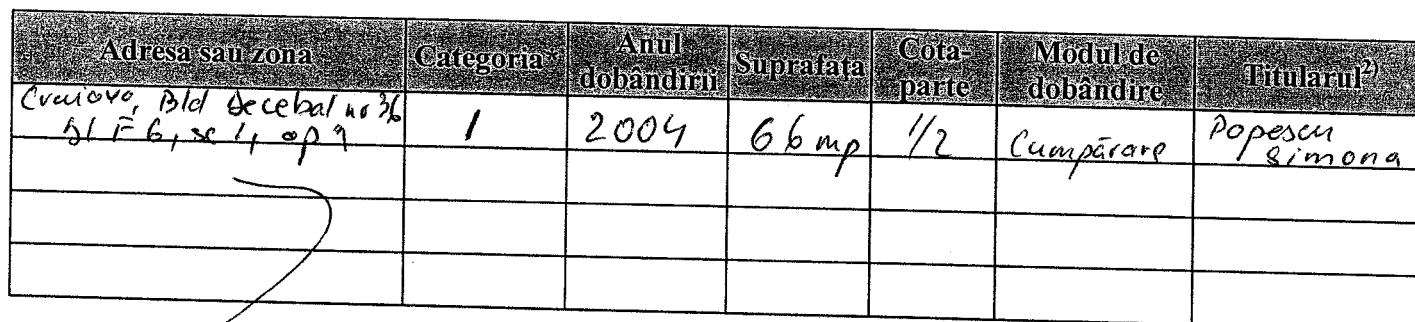 Adresa sau zona Categoria* Anul dobândirii Suprafața Cota-parte Modul de dobândire Titularul2)
Craiova, Bld Decebal nr 36 1 2004 66 mp 1/2 Cumpărare Popescu
bl F6, sc 1, ap 9 Simona